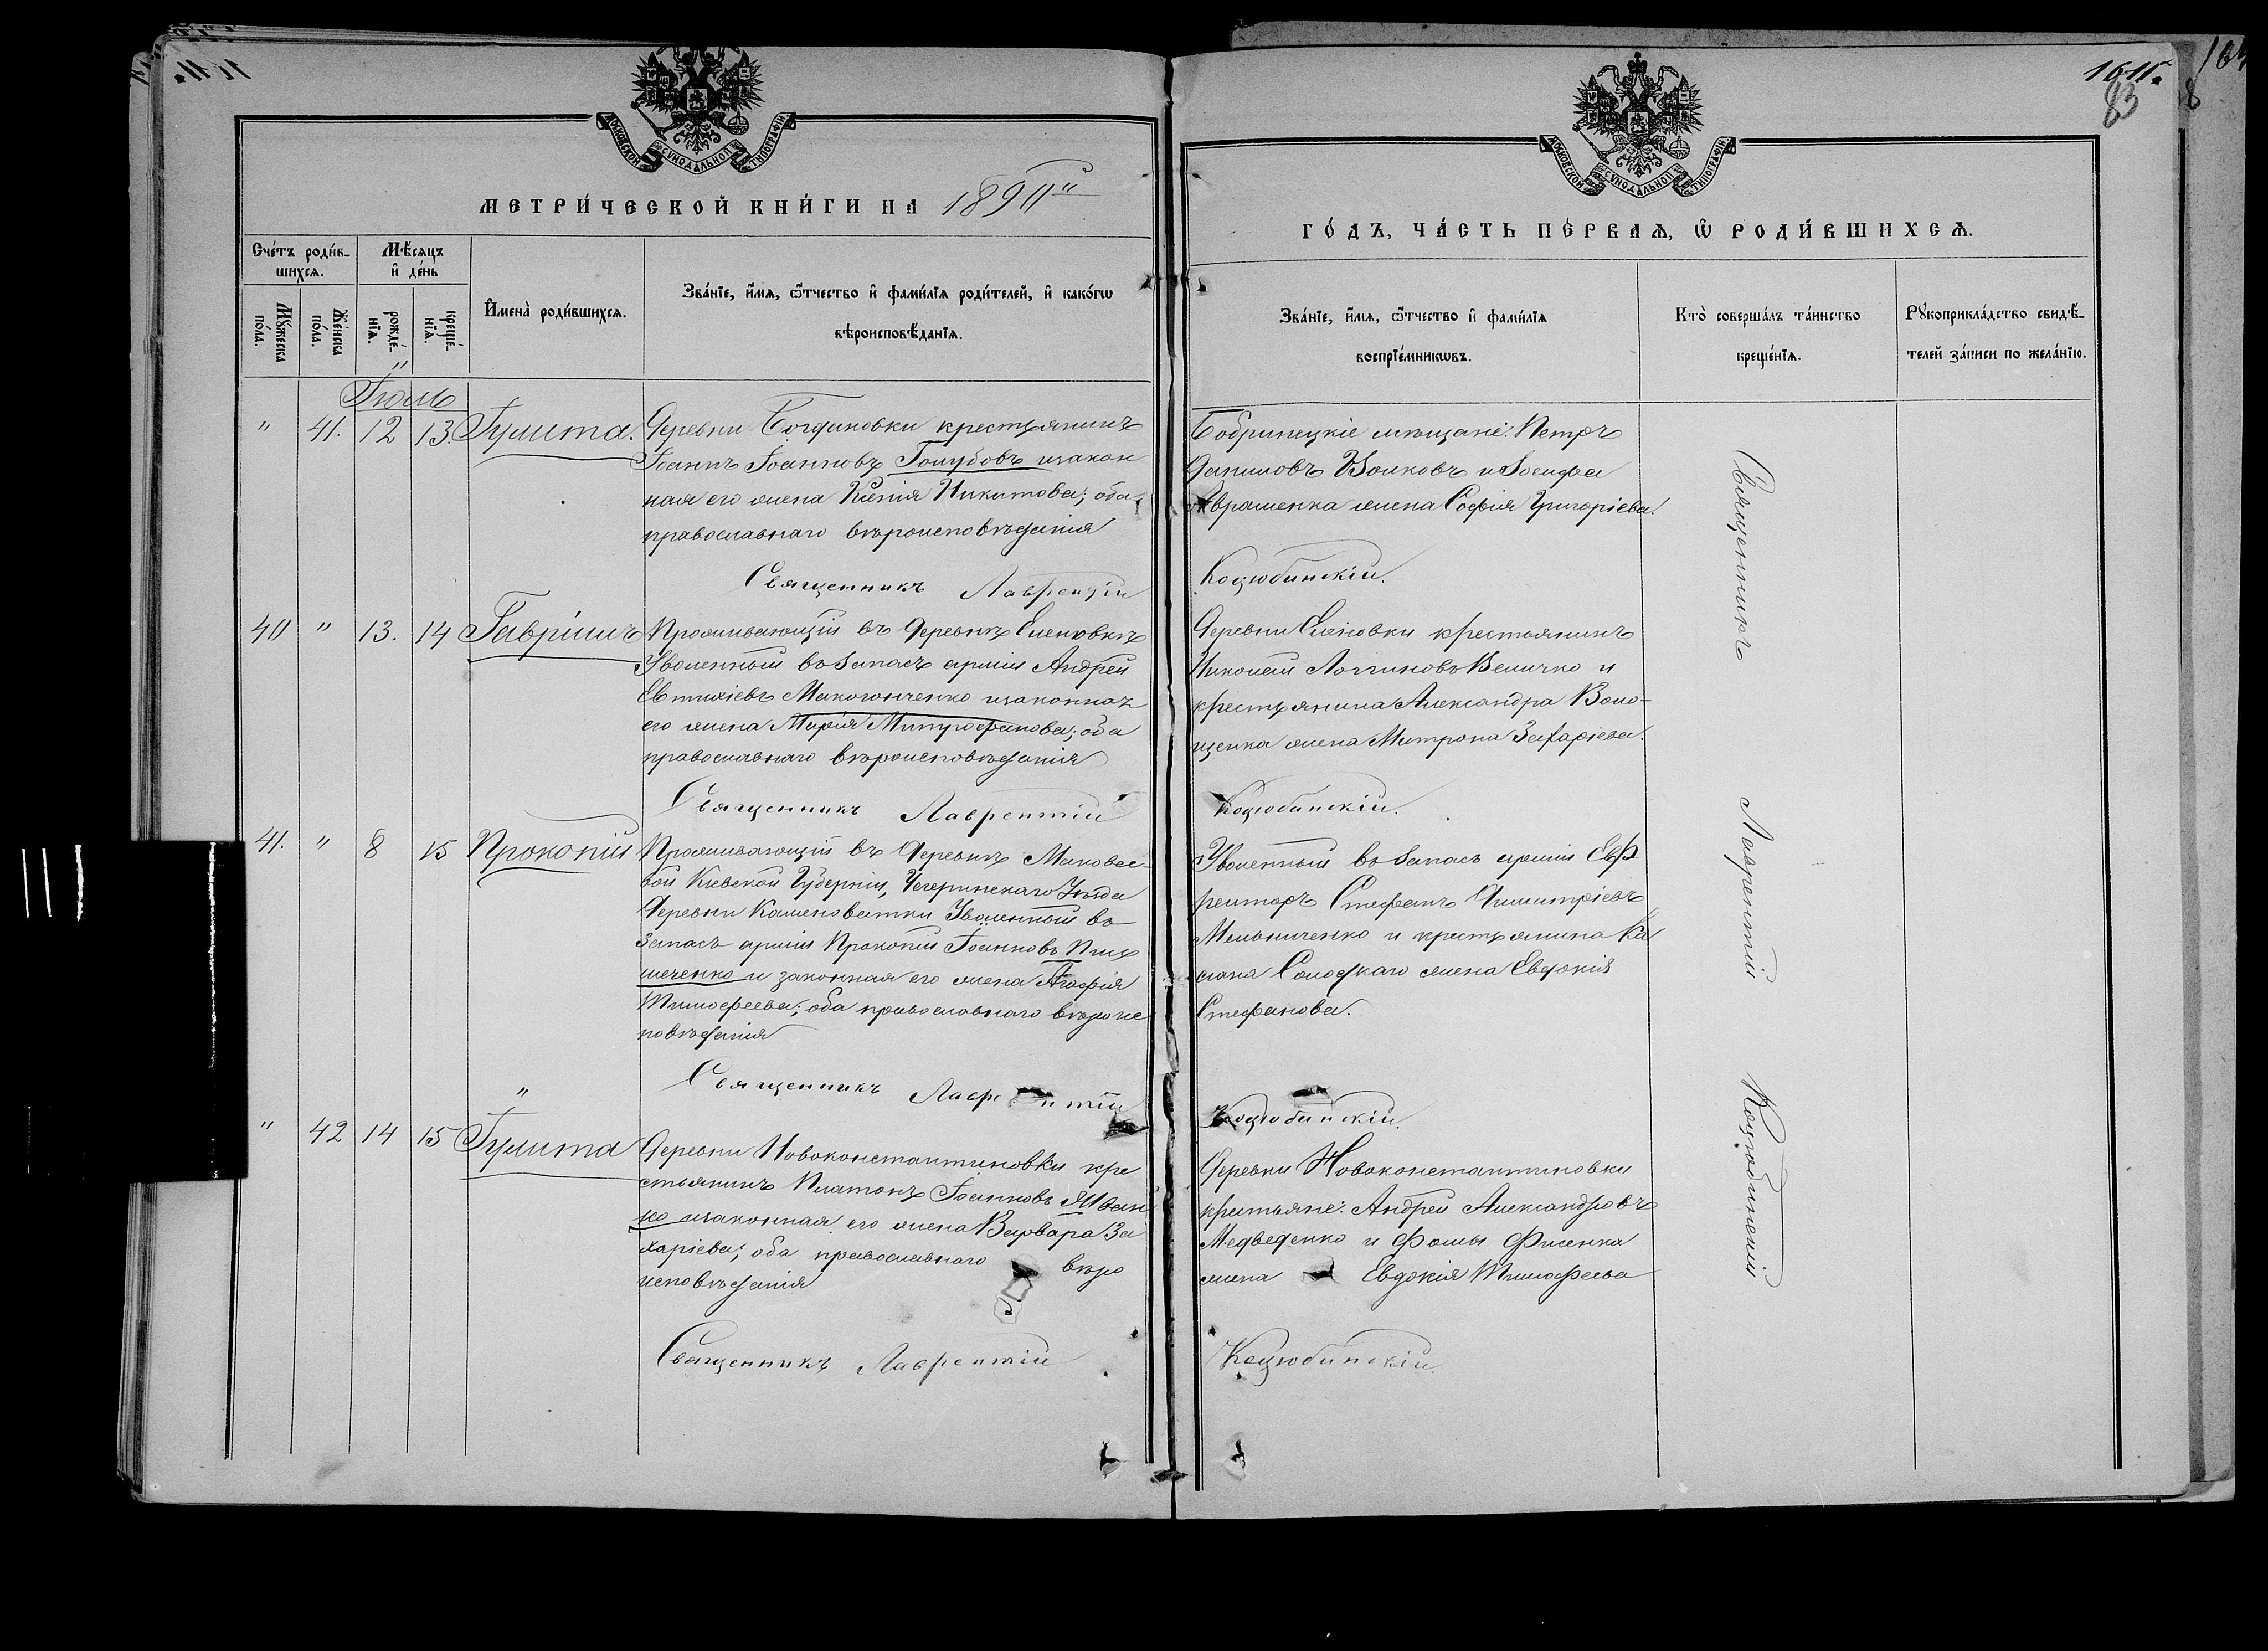 1611.
83
МОСКОВСКОЙ СѴНОДАЛЬНОЙ ТИПОГРАФІИ
МЕТРИ́ЧЕСКОЙ КНИ́ГИ НА
МОСКОВСКОЙ СѴНОДАЛЬНОЙ ТИПОГРАФІИ
ГО́ДЪ, ЧА́СТЬ ПЕ́РВАѦ, Ѡ҆ РОДИ́ВШИХСѦ.
Сче́тъ роди́в-
шихсѧ.
Мꙋ́жеска
по́ла.
Же́нска
по́ла.
Мѣ́сѧцъ
и҆ де́нь
рожде́-
нїѧ.
креще́-
нїѧ.
И҆мена̀ роди́вшихсѧ.
Зва́нїе, и҆́мѧ, ѻ҆́тчество и҆ фами́лїѧ роди́телей, и҆ како́гѡ
вѣроисповѣ́данїѧ.
Зва́нїе, и҆́мѧ, ѻ҆́тчество и҆ фами́лїѧ
воспрїе́мникѡвъ.
Кто̀ соверша́лъ та́инство
креще́нїѧ.
Рꙋкоприкла́дство свидѣ́-
телей за́писи по жела́нїю.
Іюль
" 41. 12 13. Іулита.
Деревни Богдановки крестьянинъ
Іоаннъ Іоанновъ Голубовъ изакон
ная его жена Ксенія Никитова; оба
православнаго вѣроисповѣданія
Священникъ Лаврентій
Бобринецкіе мѣщане: Петръ
Даниловъ Волковъ и Іосифа
Авраменка жена Софія Григоріева.
Коцюбинскій.
40 " 13. 14 Гавріилъ
Проживающій въ Деревнѣ Еленовкѣ
Уволенный въ Запасъ арміи Андрей
Евтихіевъ Макогонченко изаконная
его жена Марія Митрофанова; оба
православнаго вѣроисповѣданія
Священникъ Лаврентій
Деревни Еленовки крестьянинъ
Николай Логгиновъ Величко и
крестьянина Александра Воло-
щенка жена Матрона Захаріева.
Коцюбинскій.
41. " 8 15 Прокопій
Проживающій въ Деревнѣ Маковее-
вой Кіевской Губерніи, Чегеринскаго Уѣзда
Деревни Каменоватки Уволенный въ
Запасъ арміи Прокопій Іоанновъ
и законная его жена Агафія
Тимофеева; оба православнаго вѣроис
повѣданія
Священникъ Лаврентій
Уволенный въ Запасъ арміи Еф
рейторъ Стефанъ Димитріевъ
Мельниченко и крестьянина Ка
жена Евдокія
Стефанова.
Коцюбинскій.
" 42 14 15 Іулита
Деревни Новоконстантиновки кре
стьянинъ Платонъ Іоанновъ Иван
ко изаконная его жена Варвара За
харіева; оба православнаго вѣро
исповѣданія
Священникъ Лаврентій
Деревни Новоконстантиновки
крестьяне: Андрей Александровъ
Медведенко и Фомы
жена Евдокія Тимофеева
Коцюбинскій
Священникъ Лаврентій Коцюбинскій